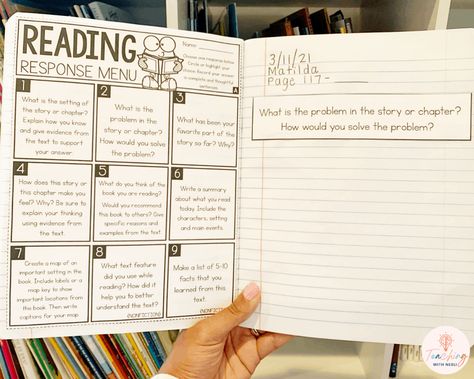 READING
RESPONSE MENU
Name:
Choose one response below.
Circle or highlight your
choice. Record your answer
in complete and thoughtful
sentences.
A
1
What is the setting of
the story or chapter?
Explain how you know
and give evidence from
the text to support
your answer.
2
What is the
problem in the
story or chapter?
How would you solve
the problem?
3
What has been your
favorite part of the
story so far? Why?
4
How does this story or
this chapter make you
feel? Why? Be sure to
explain your thinking
using evidence from
the text.
5
What do you think of the
book you are reading?
Would you
recommend this
book to others? Give
specific reasons and
examples from the text.
6
Write a summary
about what you read
today. Include the
characters, setting,
and main events.
7
Create a map of an
important setting in the
book. Include labels or a
map key to show
important locations from
the book. Then write
captions for your map.
8
What text feature
did you use while
reading? How did it
help you to better
understand the text?
(NONFICTION)
9
Make a list of 5-10
facts that you
learned from this
text.
(NONFICTION)
3/11/21
Matilda
Page 117-
What is the problem in the story or chapter?
How would you solve the problem?
Teaching
WITH NESLI